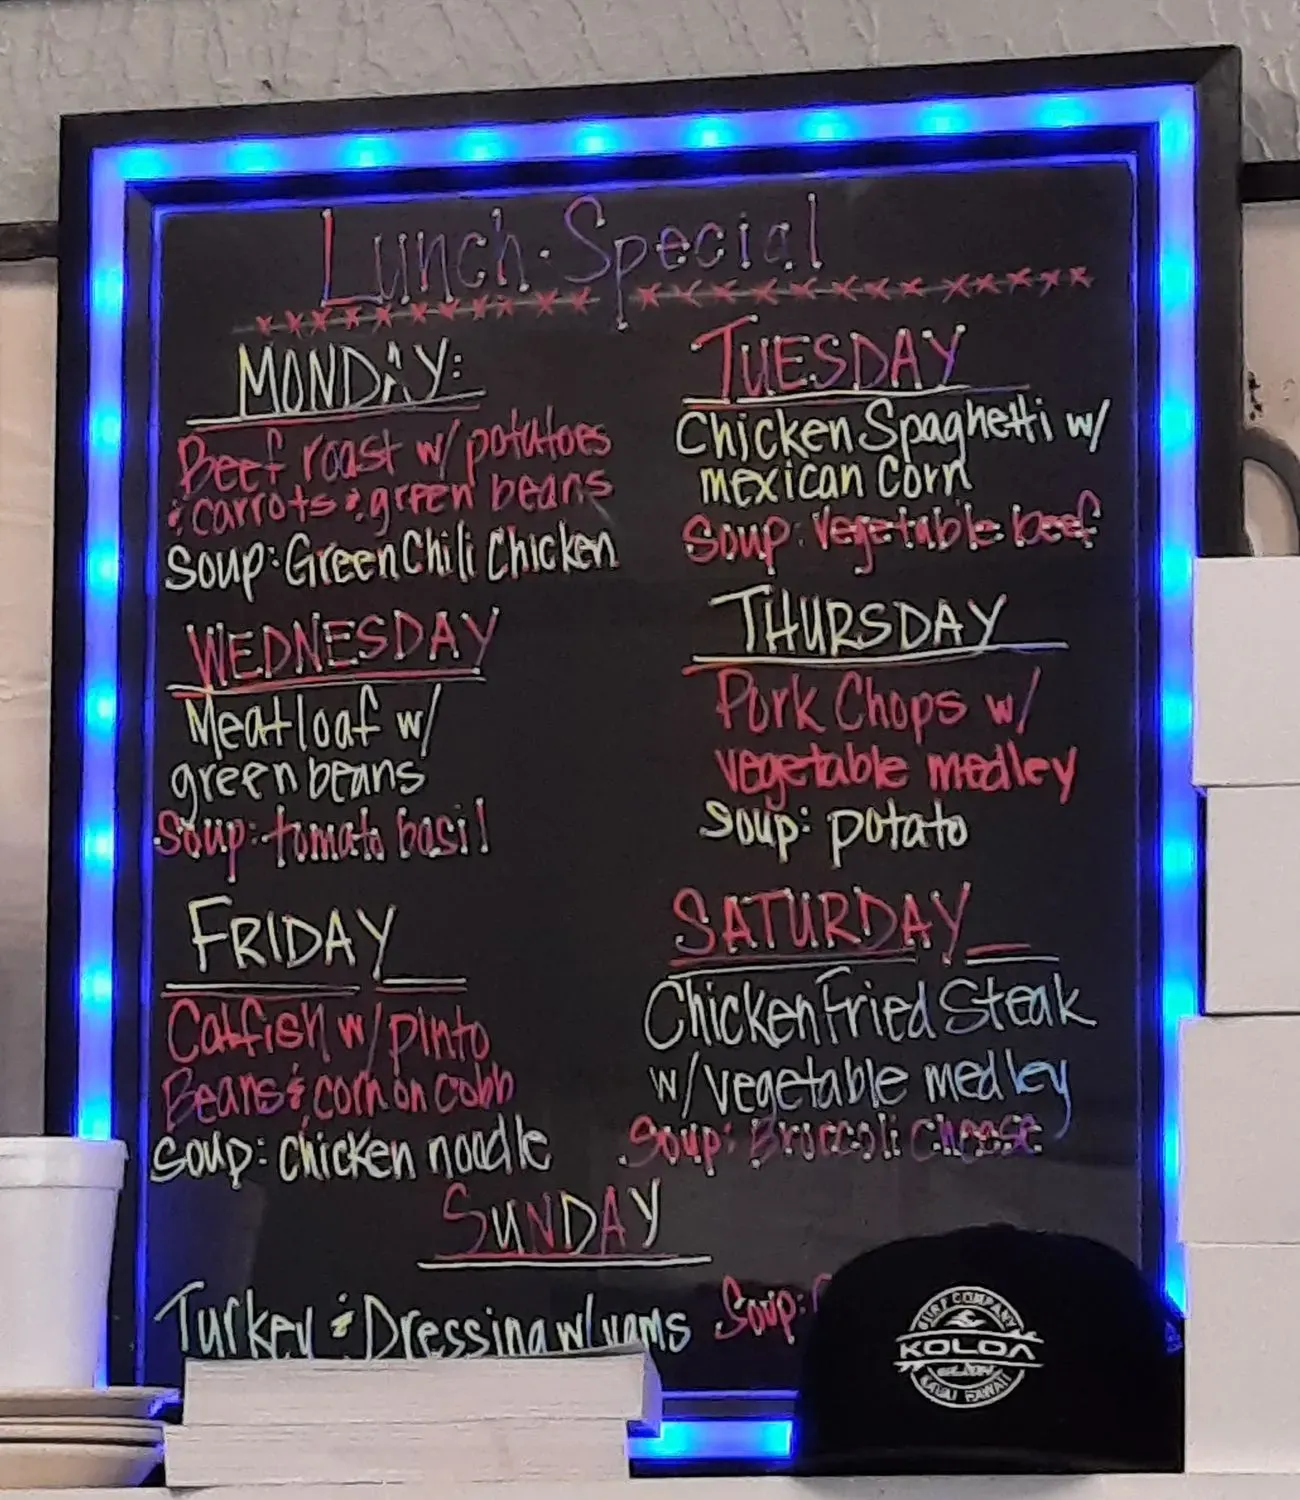 Lunch Special
MONDAY:
Beef roast w/ potatoes
& carrots & green beans
Soup: Green Chili Chicken
TUESDAY
Chicken Spaghetti w/
mexican corn
Soup: Vegetable beef
WEDNESDAY
Meatloaf w/
green beans
Soup: tomato basil
THURSDAY
Pork Chops w/
vegetable medley
Soup: potato
FRIDAY
Catfish w/ pinto
Beans & corn on cobb
Soup: chicken noodle
SATURDAY
Chicken Fried Steak
w/ vegetable medley
Soup: Broccoli Cheese
SUNDAY
Turkey & Dressing w/ yams
Soup:
SURF COMPANY
KOLOA
KAUAI HAWAII